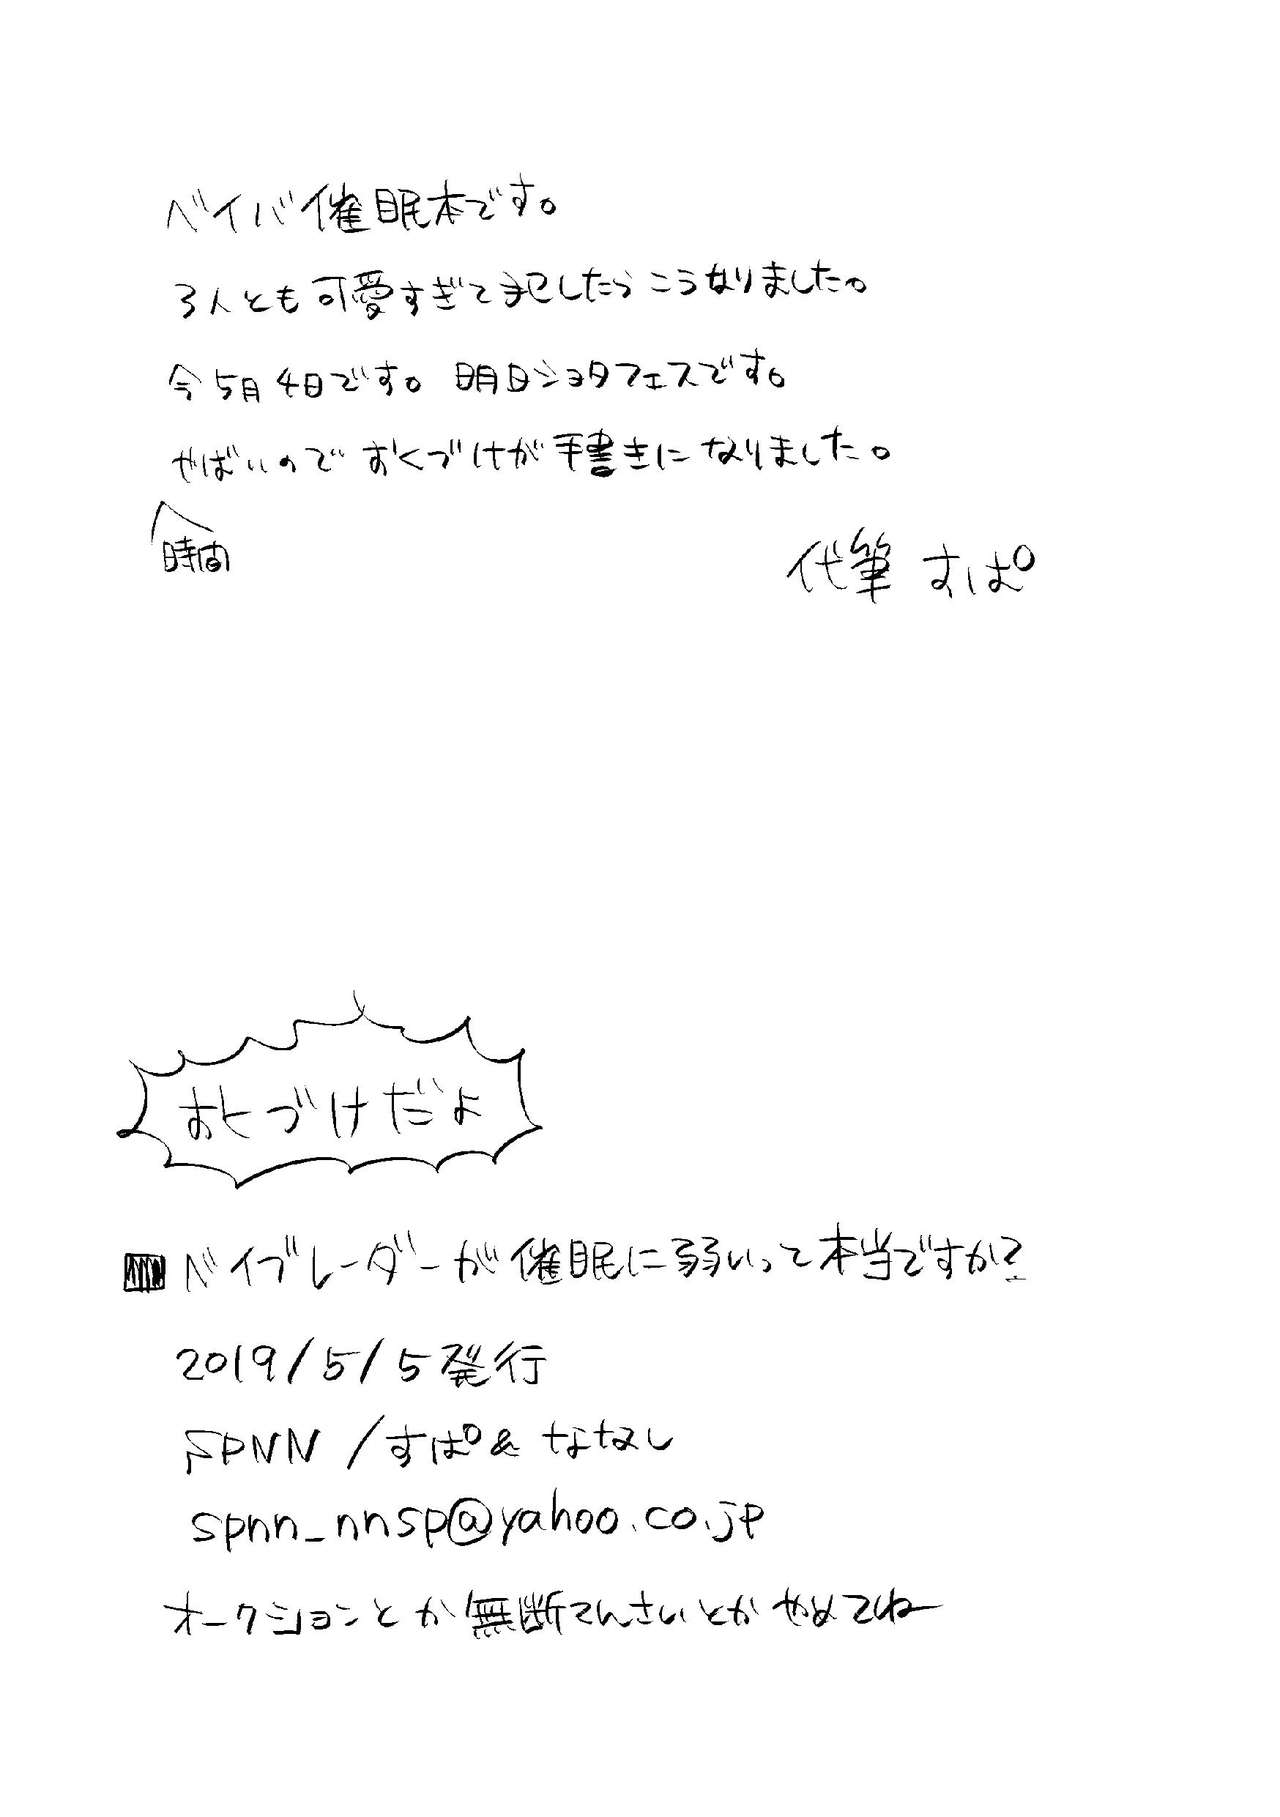 ベイバ催眠本です。
3人とも可愛すぎて犯したらこうなりました。
今5月4日です。明日ショタフェスです。
やばいのでおくづけが手書きになりました。
時間
代筆 すぱ
おくづけだよ
ベイブレーダーが催眠に弱いって本当ですか?
2019/5/5発行
SPNN/すぱ&ななし
spnn_nnsp@yahoo.co.jp
オークションとか無断てんさいとかやめてねー